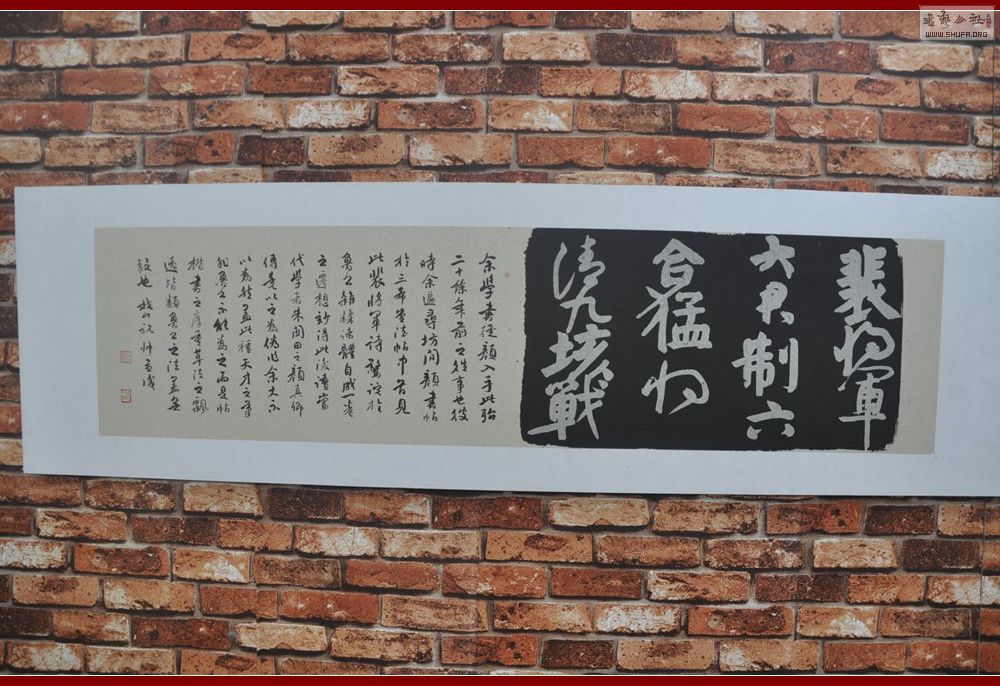 裴将軍
大君制六
合猛将
清九垓戰
余學書從顏入手此殆
二十餘年前之往事也彼
時余遍尋坊間顏書帖
於三希堂法帖中首見
此裴將軍詩驚詫於
魯公雜糅諸體自成一老
之遷想妙得此後讀當
代學者朱関田之顏真卿
傳竟以之為偽作余大不
以為然蓋此種天才之筆
非魯公不能為之而是帖
楷書之厚重草法之飄
逸皆類魯公之法蓋無
疑也
書法公社
WWW.SHUFA.ORG